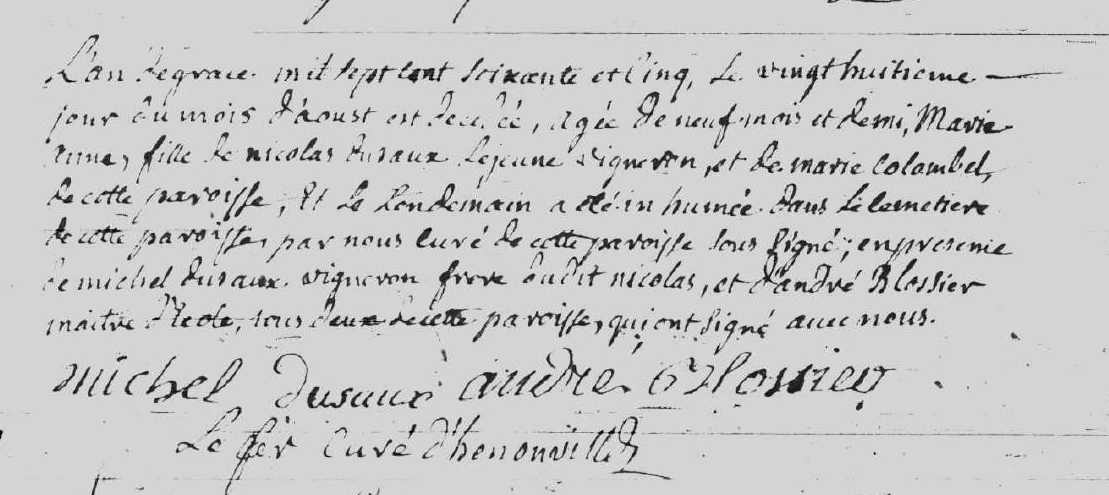 L'an de grace mil sept cent soixante et cinq, le vingt huitieme
jour du mois d'aoust est decedée, agée de neuf mois et demi, Marie
anne, fille de nicolas dusaux lejeune vigneron, et de marie Colombel,
de cette paroisse, et le lendemain a été inhumée dans le cemetiere
de cette paroisse, par nous curé de cette paroisse sous signé; en presence
de michel dusaux vigneron frere dudit nicolas, et d'andré Blossier
maitre d'Ecole, tous deux de cette paroisse, qui ont signé avec nous.
michel dusaux andré Blossier
Le fèr Curé d'henonville